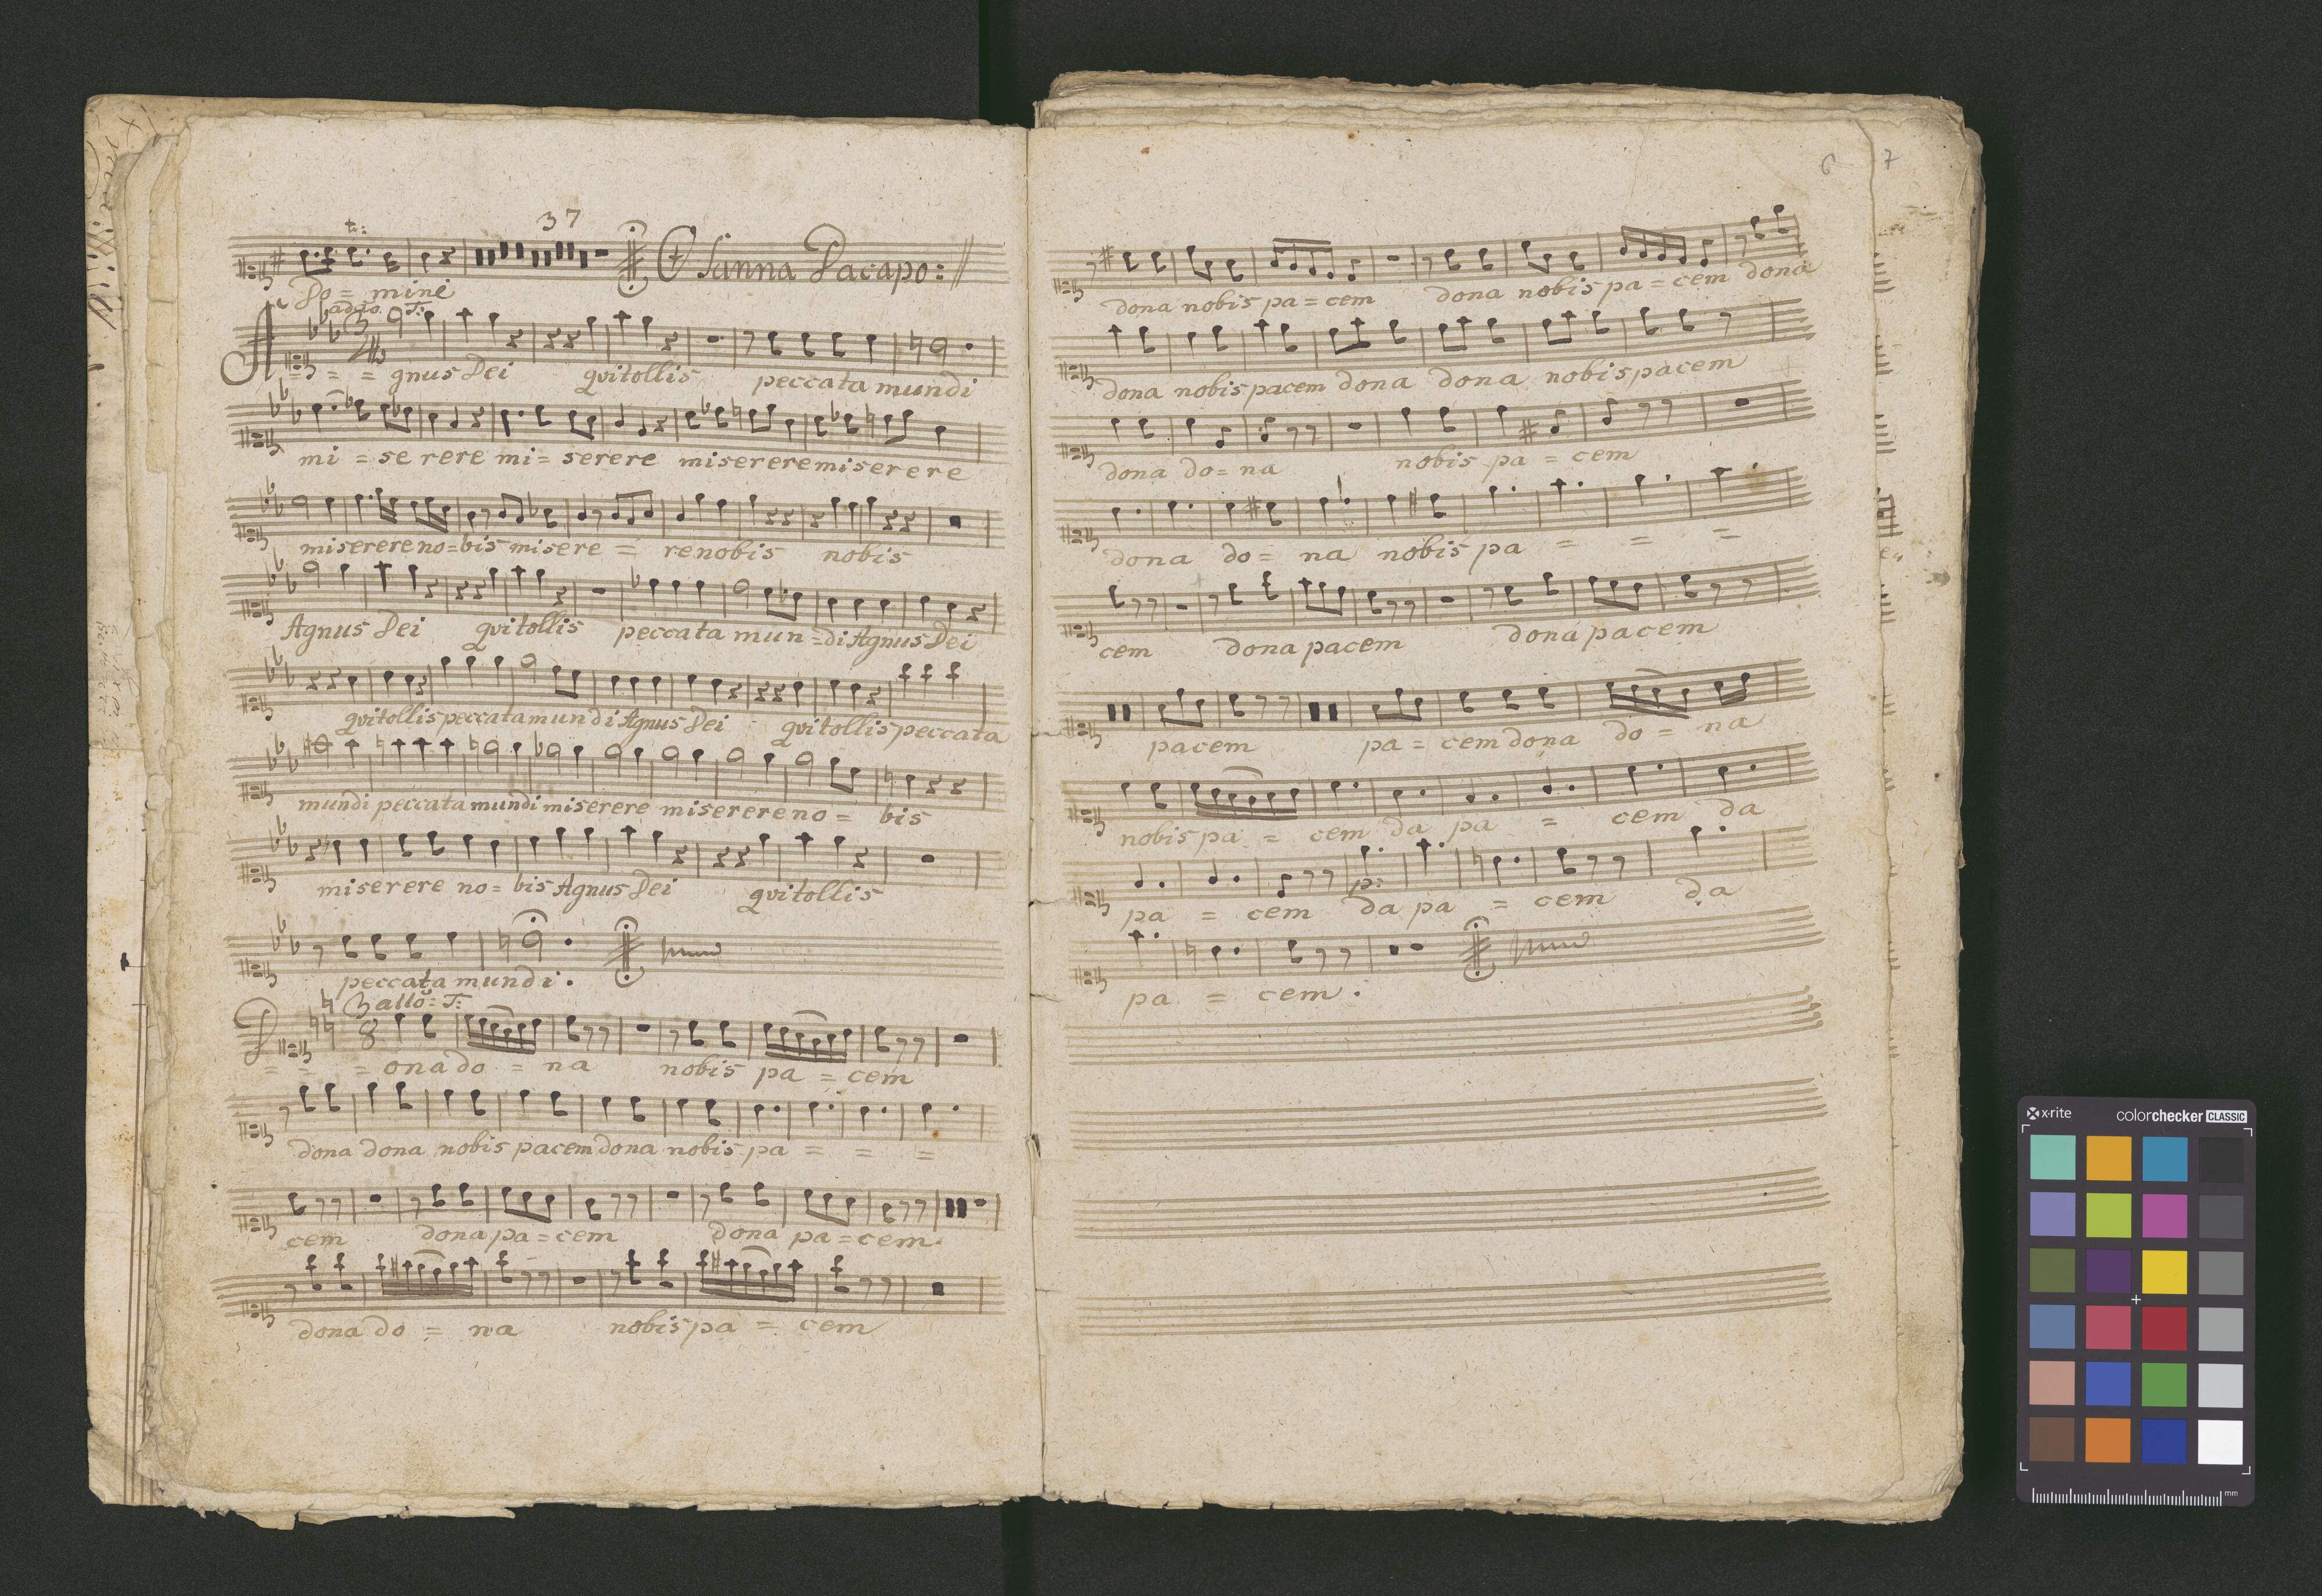 37
tr:
Osanna Dacapo: //
Do = mine
adgio. T:
A = = = gnus Dei qvi tollis peccata mundi
mi = se rere mi = serere miserere miserere
miserere no = bis misere = re nobis nobis
Agnus Dei qvi tollis peccata mun = di Agnus Dei
qvi tollis peccata mundi Agnus Dei qvi tollis peccata
mundi peccata mundi miserere miserere no = bis
miserere no = bis Agnus Dei qvi tollis
peccata mundi.
3 allo: T:
8
D = = = ona do = na nobis pa = cem
dona dona nobis pacem dona nobis pa = = =
cem dona pa = cem dona pa = cem.
dona do = na nobis pa = cem
6 7
dona nobis pa = cem dona nobis pa = cem dona
dona nobis pacem dona dona nobis pacem
dona do = na nobis pa = cem
dona do = na nobis pa = = =
cem dona pacem dona pacem
pacem pa = cem dona do = na
nobis pa = cem da pa = cem da
p:
pa = cem da pa = cem da
pa = cem.
x-rite colorchecker CLASSIC
mm